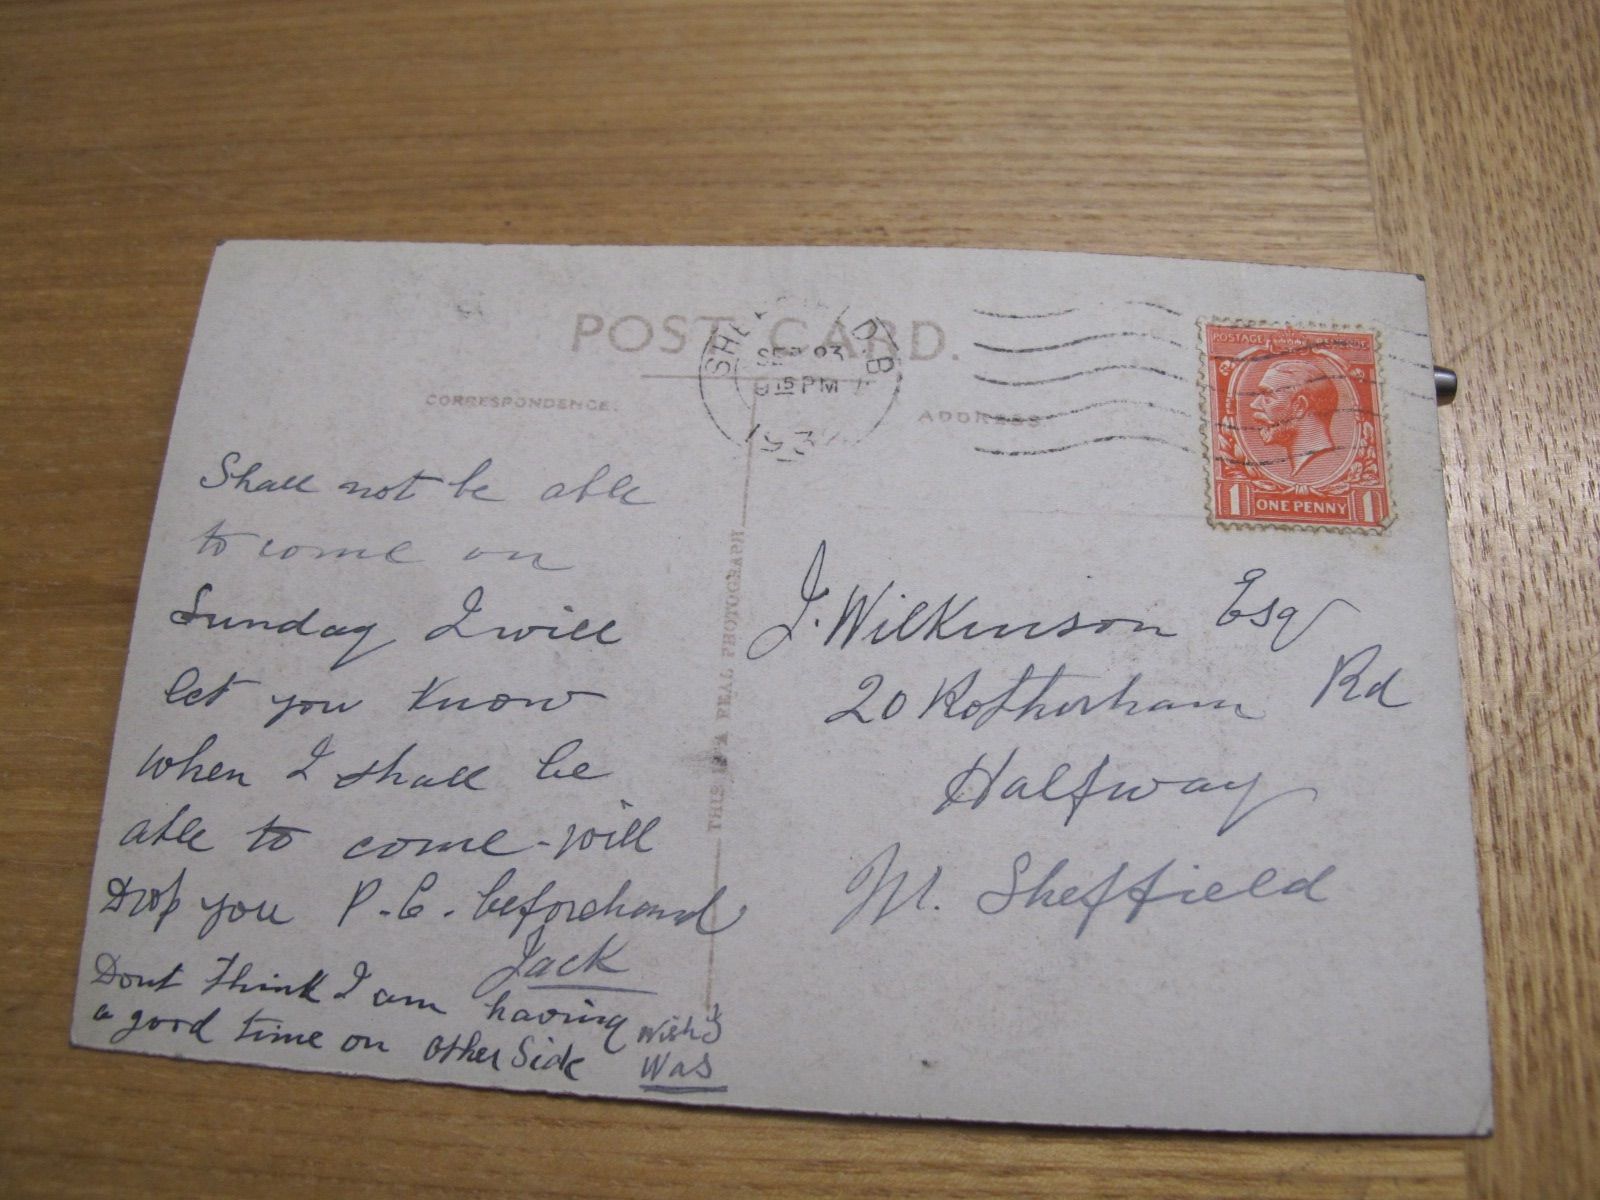 POST CARD.
CORRESPONDENCE.
ADDRESS
SHEFFIELD B
SEP 23
15 PM
193
POSTAGE REVENUE
1 ONE PENNY 1
THIS IS A REAL PHOTOGRAPH
Shall not be able
to come on
Sunday I will
let you know
when I shall be
able to come - will
Drop you P.C. beforehand
Jack
Dont Think I am having
a good time on other Side
Wish I
Was
J. Wilkinson Esq
20 Rotherham Rd
Halfway
Sheffield